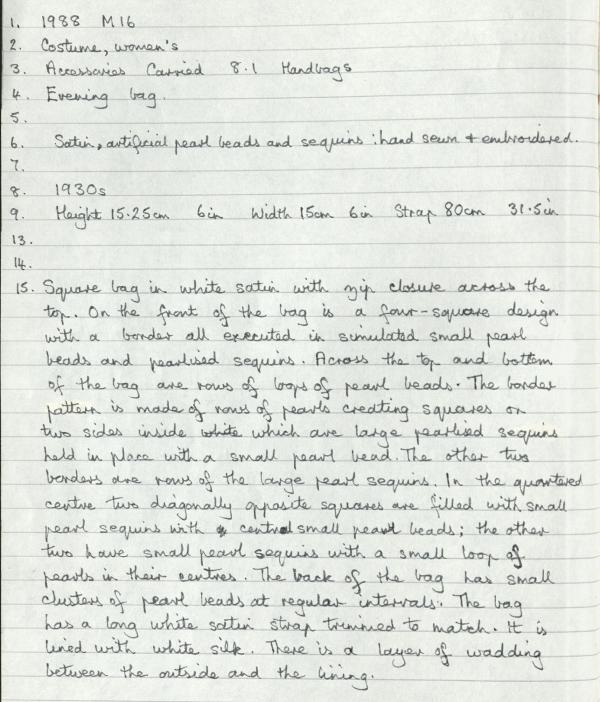 1. 1988 M16
2. Costume, women's
3. Accessories Carried 8.1 Handbags
4. Evening bag.
5.
6. Satin, artificial pearl beads and sequins : hand sewn + embroidered.
7.
8. 1930s
9. Height 15.25cm 6in Width 15cm 6in Strap 80cm 31.5in
13.
14.
15. Square bag in white satin with zip closure across the
top. On the front of the bag is a four-square design
with a border all executed in simulated small pearl
beads and pearlised sequins. Across the top and bottom
of the bag are rows of loops of pearl beads. The border
pattern is made of rows of pearls creating squares on
two sides inside white which are large pearlised sequins
held in place with a small pearl bead. The other two
borders are rows of the large pearl sequins. In the quartered
centre two diagonally opposite squares are filled with small
pearl sequins with central small pearl beads; the other
two have small pearl sequins with a small loop of
pearls in their centres. The back of the bag has small
clusters of pearl beads at regular intervals. The bag
has a long white satin strap trimmed to match. It is
lined with white silk. There is a layer of wadding
between the outside and the lining.